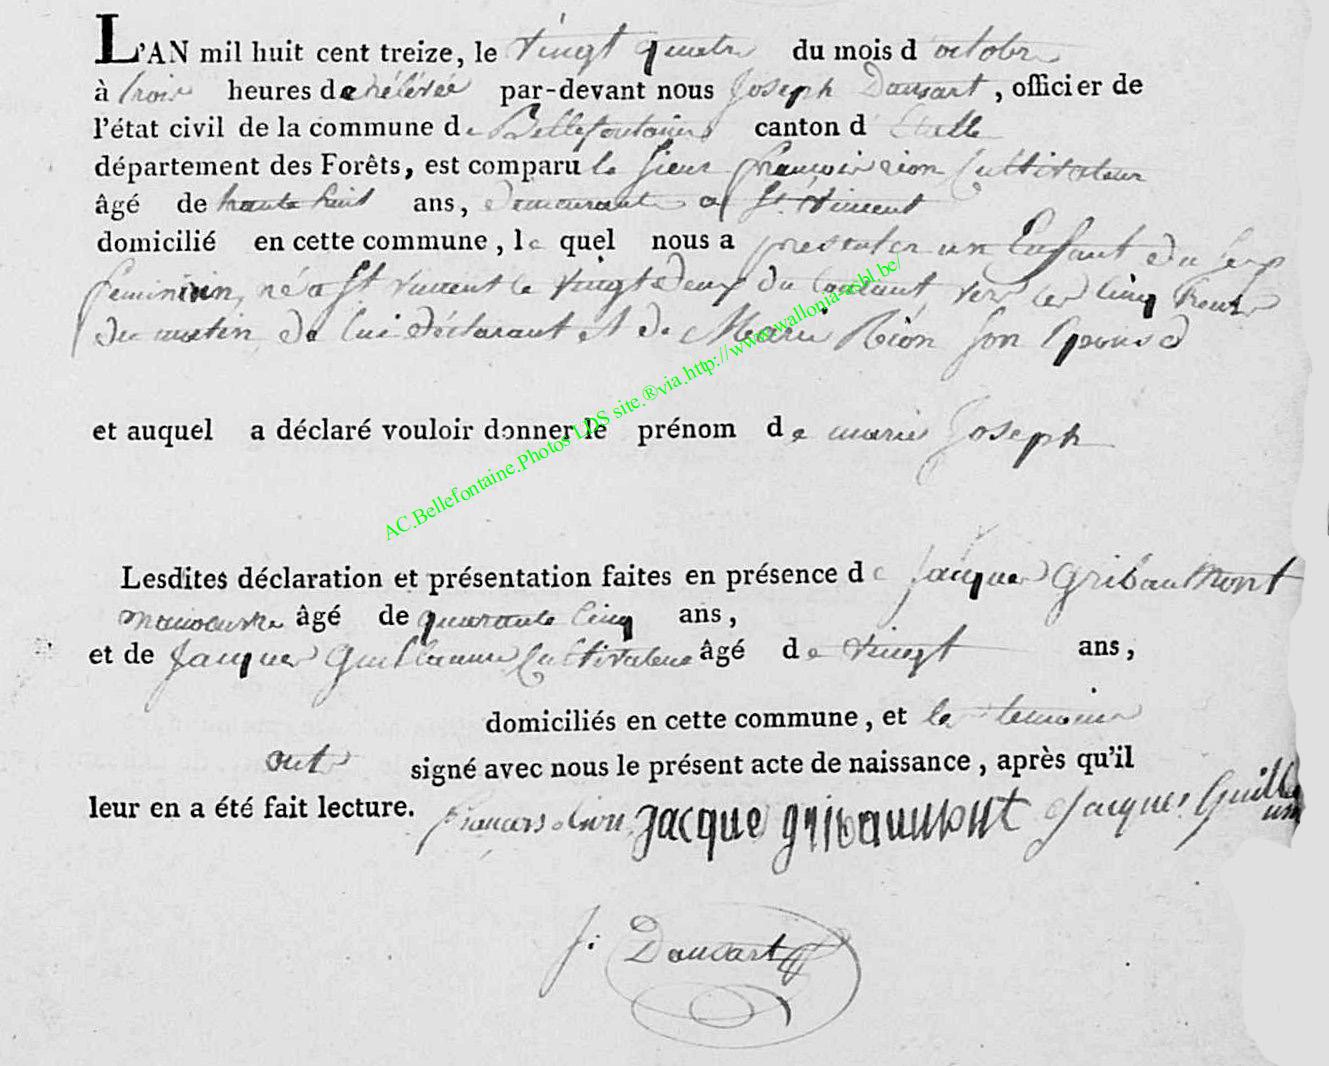 L'AN mil huit cent treize, le vingt quatre du mois d octobre
à trois heures de rélévée par-devant nous Joseph Dausart, officier de
l'état civil de la commune de Bellefontaine canton d Etalle
département des Forêts, est comparu le sieur françois rion Cultivateur
âgé de trante huit ans, demeurant a St. vincent
domicilié en cette commune, le quel nous a presenter un Enfant du sexe
feminin, né a St vincent le vingt deux du Courant, vers les cinq heures
du matin, de lui déclarant et de Marie Rion son Epouse
et auquel a déclaré vouloir donner le prénom de marie Joseph
AC.Bellefontaine.Photos LDS site.®via.http://www.wallonia-asbl.be/
Lesdites déclaration et présentation faites en présence de Jacques Gribaumont
manoeuvre âgé de quarante cinq ans,
et de Jacques Guillaume Cultivateur âgé de vingt ans,
domiciliés en cette commune, et les temoins
ont signé avec nous le présent acte de naissance, après qu'il
leur en a été fait lecture. francois Jacque gribaumont Jacques Guilla
um
J. Dausart